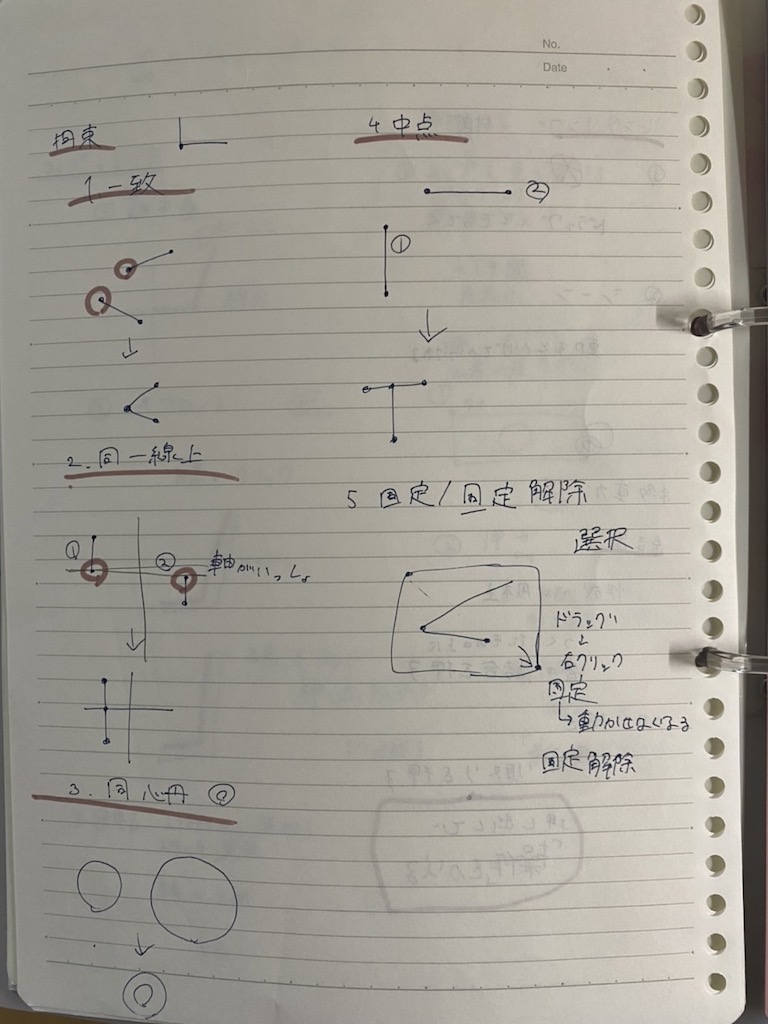 No.
Date
拘束
1 一致
2. 同一線上
① ② 軸がいっしょ
3. 同心円 ◎
4 中点
②
①
5 固定/固定解除
選択
ドラッグ
↓
右クリック
固定
↳動かせなくなる
固定解除